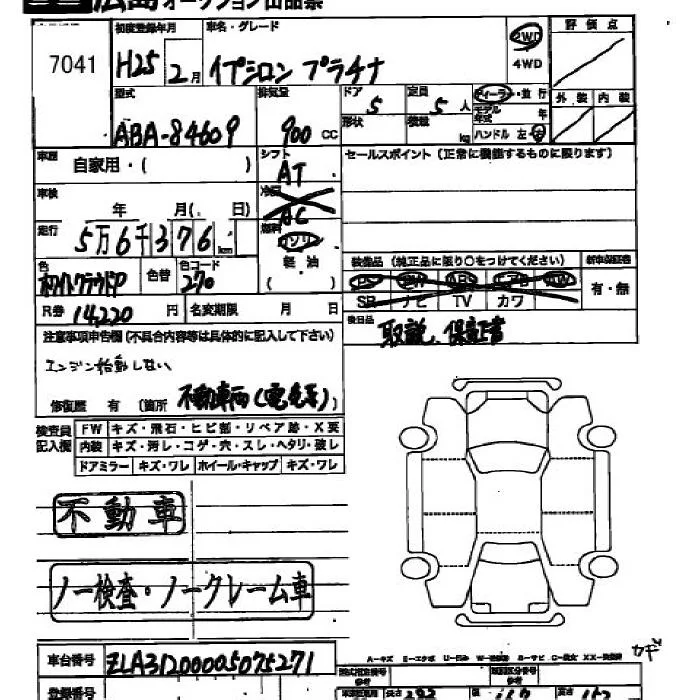 広島 オークション出品票
7041
初度登録年月
H25 2月
車名・グレード
イプシロン プラチナ
2WD
4WD
評価点
型式
ABA-84609
排気量
900 cc
ドア 5
形状
定員 5 人
積載 kg
ディーラー・並行
モデル年式 年
ハンドル 左・右
外装 内装
車歴
自家用・( )
シフト
AT
セールスポイント(正常に機能するものに限ります)
車検
年 月( 日)
冷房
AC
走行
5万6千376 km
燃料
ガソリン
軽油
( )
色
ホワイトクラウドP
色替
色コード
270
装備品(純正品に限り○をつけてください)
PS PW ABS エアB AW
SR ナビ TV カワ
新車保証書
有・無
R券 14,220 円
名変期限 月 日
後日品
取説、保証書
注意事項申告欄(不具合内容等は具体的に記入して下さい)
エンジン始動しない
修復歴 有 (箇所 不動車両(電気系)
検査員記入欄
FW キズ・飛石・ヒビ割・リペア跡・X要
内装 キズ・汚レ・コゲ・穴・スレ・ヘタリ・破レ
ドアミラー キズ・ワレ ホイール・キャップ キズ・ワレ
不動車
ノー検査・ノークレーム車
車台番号
ZLA31200005075271
A-キズ E-エクボ U-凹み
カギ
登録番号
長さ